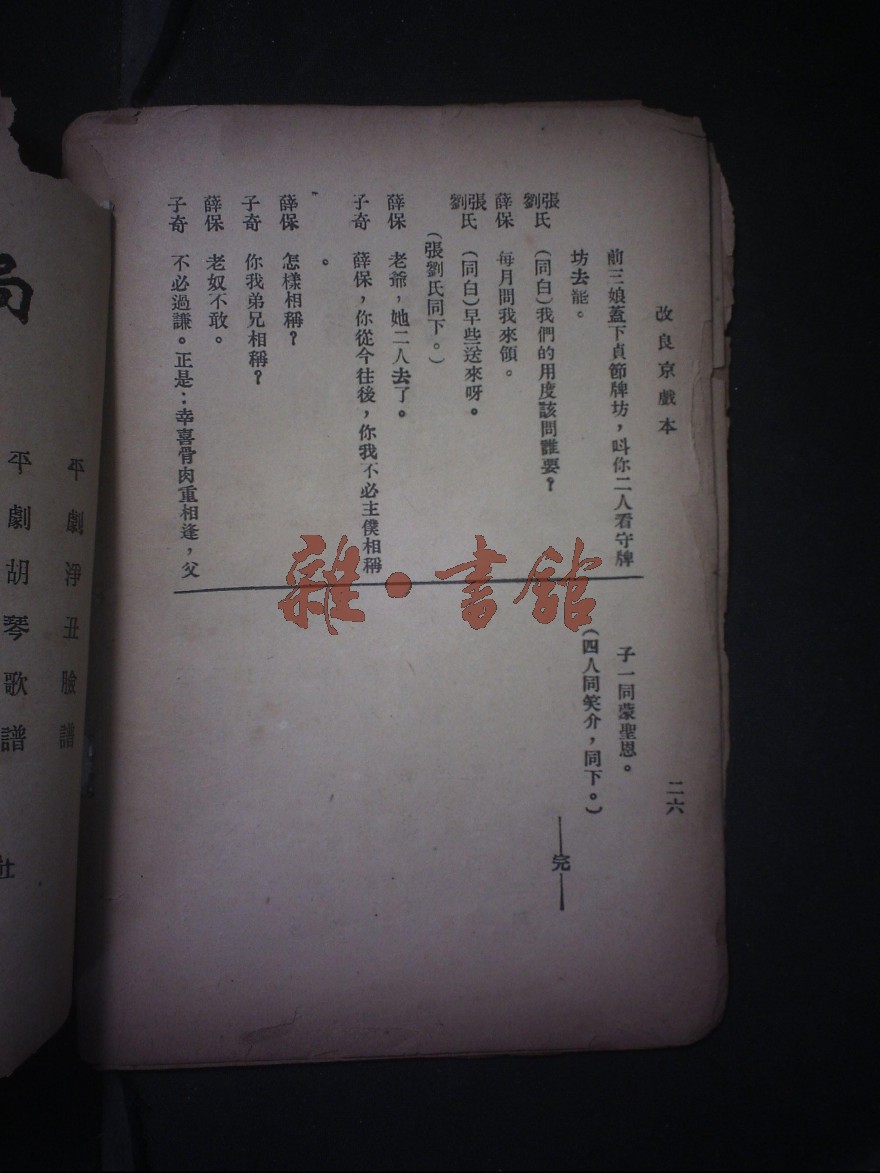 改良京戲本
二六
前三娘蓋下貞節牌坊，叫你二人看守牌
坊去罷。
張氏
劉
（同白）我們的用度該問誰要？
薛保 每月問我來領。
張氏
劉
（同白）早些送來呀。
（張劉氏同下。）
薛保 老爺，她二人去了。
子奇 薛保，你從今往後，你我不必主僕相稱
。
薛保 怎樣相稱？
子奇 你我弟兄相稱？
薛保 老奴不敢。
子奇 不必過謙。正是：幸喜骨肉重相逢，父
子一同蒙聖恩。
（四人同笑介，同下。）
——完——
雜·書館
局
平劇胡琴歌譜
社